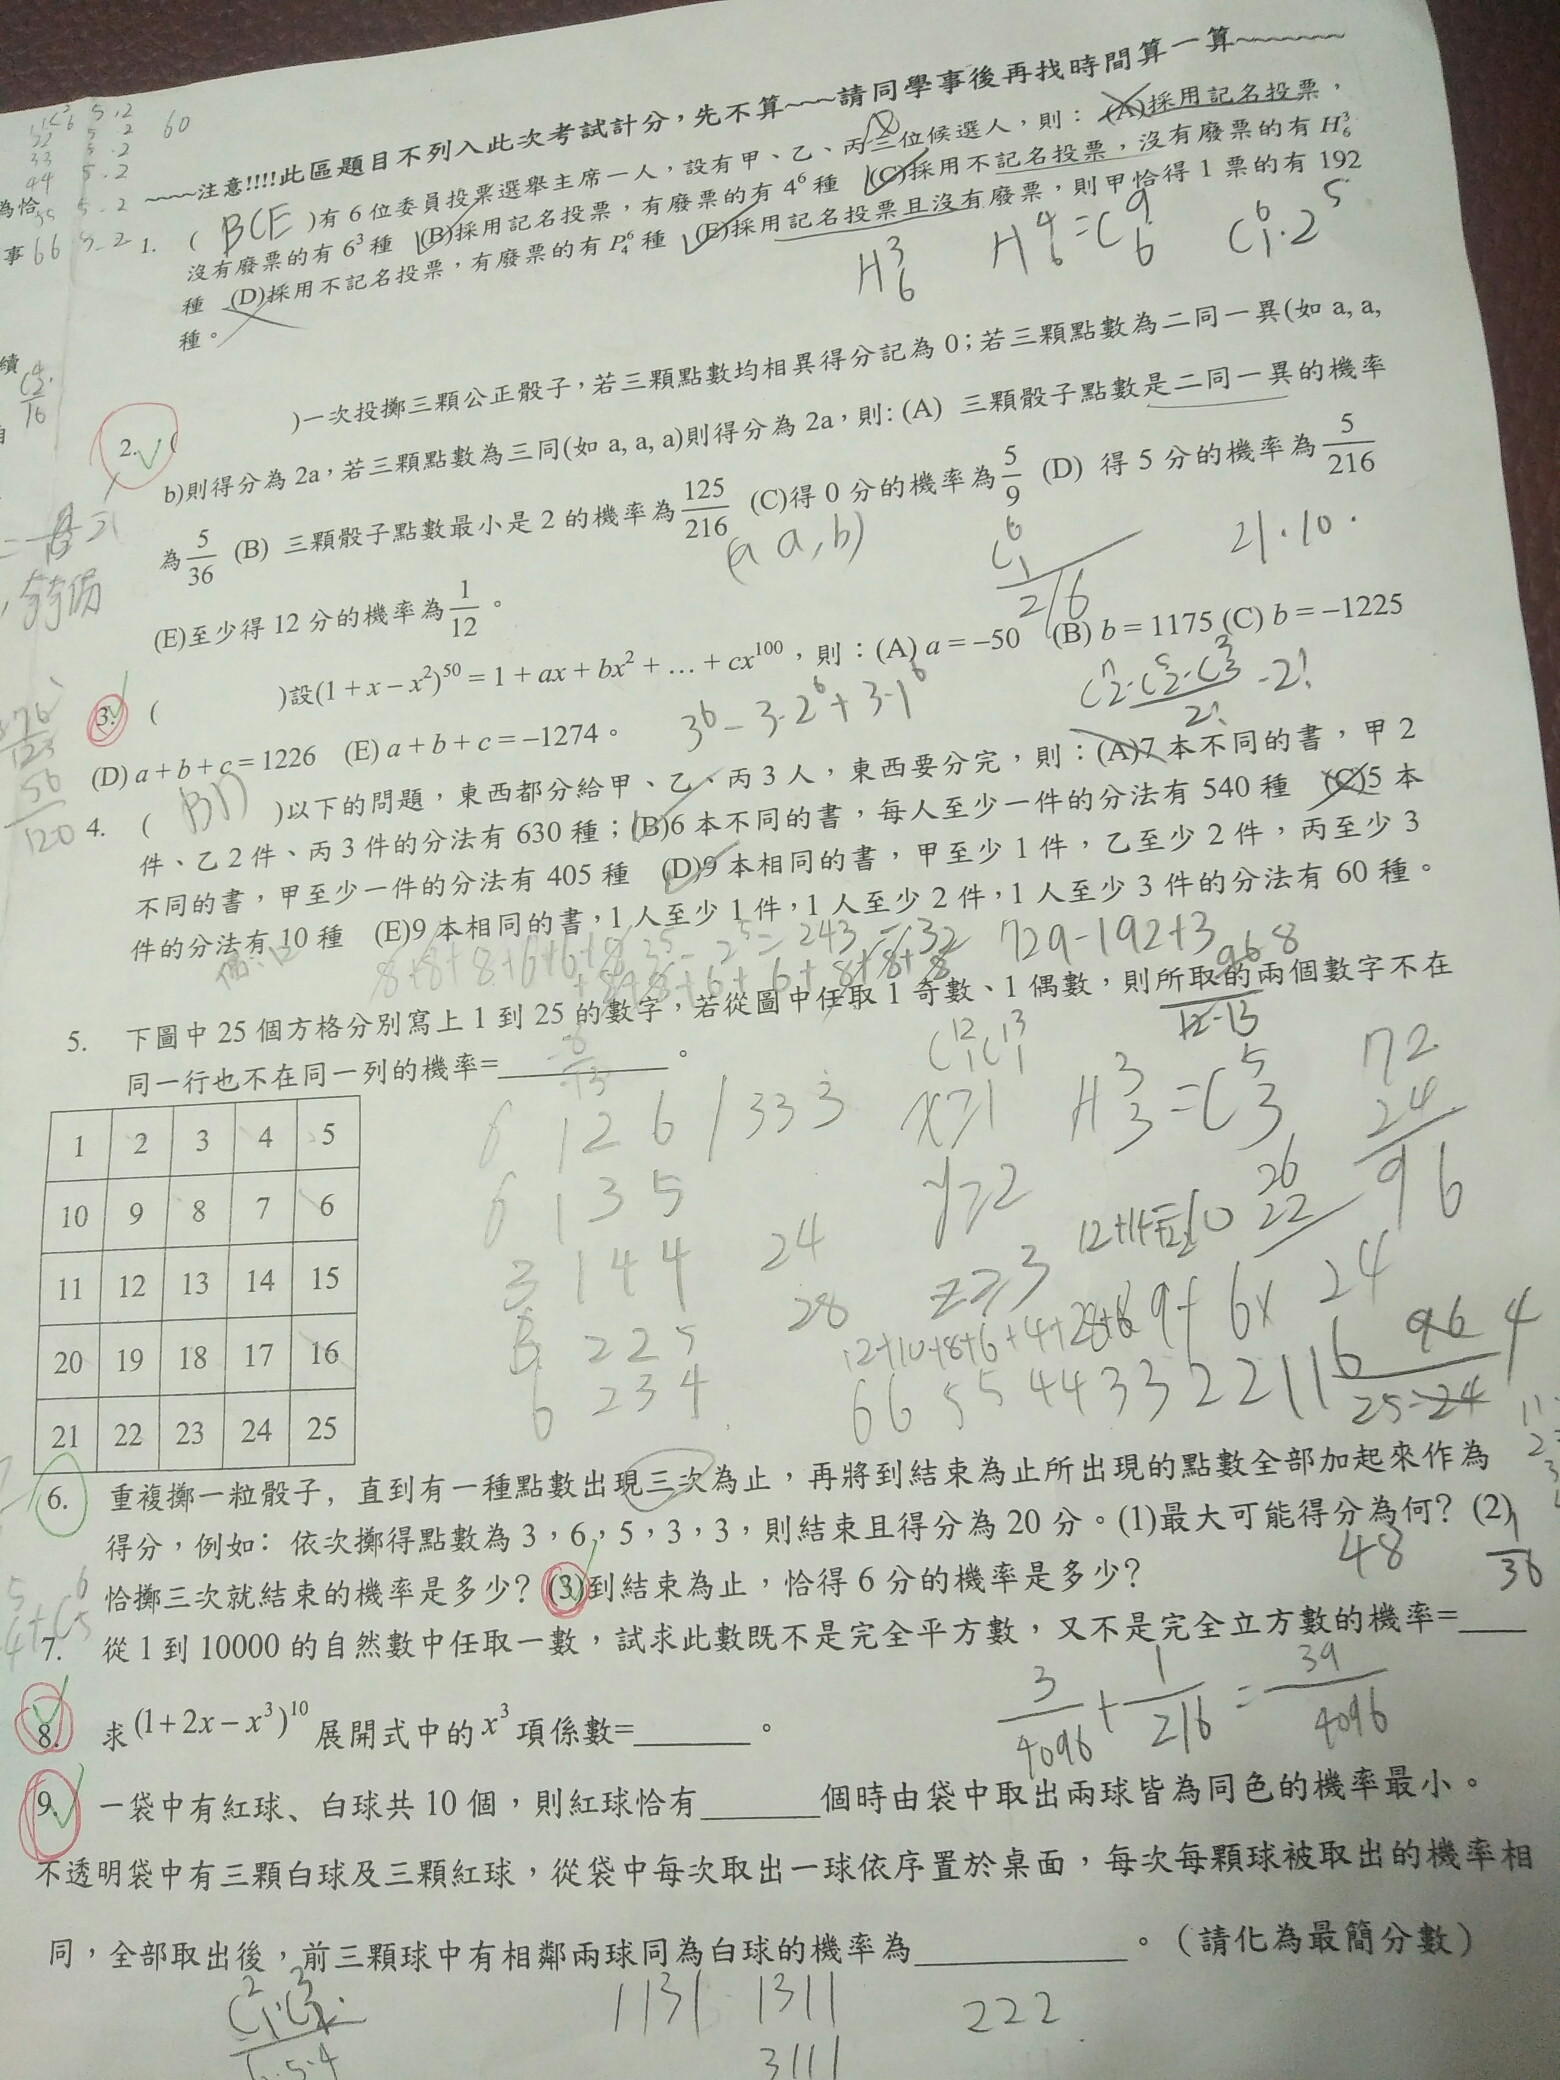 ~~~~注意!!!!此區題目不列入此次考試計分，先不算~~~請同學事後再找時間算一算~~~~~~~
1. ( BCE )有 6 位委員投票選舉主席一人，設有甲、乙、丙三位候選人，則：(A)採用記名投票，
沒有廢票的有 6³ 種 (B)採用記名投票，有廢票的有 4⁶ 種 (C)採用不記名投票，沒有廢票的有 H³₆
種 (D)採用不記名投票，有廢票的有 P⁶₄ 種 (E)採用記名投票且沒有廢票，則甲恰得 1 票的有 192
種。
H³₆ H⁴₆=C⁹₆ C⁶₁·2⁵
2. ( )一次投擲三顆公正骰子，若三顆點數均相異得分記為 0；若三顆點數為二同一異(如 a, a,
b)則得分為 2a，若三顆點數為三同(如 a, a, a)則得分為 2a，則: (A) 三顆骰子點數是二同一異的機率
為 5/36 (B) 三顆骰子點數最小是 2 的機率為 125/216 (C)得 0 分的機率為 5/9 (D) 得 5 分的機率為 5/216
(a a, b) C⁶₁/216 21·10·
(E)至少得 12 分的機率為 1/12。
3. ( )設(1 + x − x²)⁵⁰ = 1 + ax + bx² + … + cx¹⁰⁰，則：(A) a = −50 (B) b = 1175 (C) b = −1225
(D) a + b + c = 1226 (E) a + b + c = −1274。
3⁶ − 3·2⁶ + 3·1⁶
4. ( BD )以下的問題，東西都分給甲、乙、丙 3 人，東西要分完，則：(A)7 本不同的書，甲 2
件、乙 2 件、丙 3 件的分法有 630 種；(B)6 本不同的書，每人至少一件的分法有 540 種 (C)5 本
不同的書，甲至少一件的分法有 405 種 (D)9 本相同的書，甲至少 1 件，乙至少 2 件，丙至少 3
件的分法有 10 種 (E)9 本相同的書，1 人至少 1 件，1 人至少 2 件，1 人至少 3 件的分法有 60 種。
3⁵ − 2⁵ = 243 − 32 729−192+3
5. 下圖中 25 個方格分別寫上 1 到 25 的數字，若從圖中任取 1 奇數、1 偶數，則所取的兩個數字不在
同一行也不在同一列的機率=＿＿＿＿。
C¹²₁C¹³₁
1 2 3 4 5
10 9 8 7 6
11 12 13 14 15
20 19 18 17 16
21 22 23 24 25
6 1 2 6 / 3 3 3
6 1 3 5
3 1 4 4
2 2 5
6 2 3 4
24
28
x≥1
y≥2
z≥3
H³₃=C⁵₃
72
24
96
66 55 44 33 22 11
6. 重複擲一粒骰子，直到有一種點數出現三次為止，再將到結束為止所出現的點數全部加起來作為
得分，例如：依次擲得點數為 3，6，5，3，3，則結束且得分為 20 分。(1)最大可能得分為何？(2)
恰擲三次就結束的機率是多少？(3)到結束為止，恰得 6 分的機率是多少？
48 1/36
7. 從 1 到 10000 的自然數中任取一數，試求此數既不是完全平方數，又不是完全立方數的機率=＿＿
3/4096 + 1/216 = 39/4096
8. 求 (1+2x−x³)¹⁰ 展開式中的 x³ 項係數=＿＿＿＿。
9. 一袋中有紅球、白球共 10 個，則紅球恰有＿＿＿＿個時由袋中取出兩球皆為同色的機率最小。
不透明袋中有三顆白球及三顆紅球，從袋中每次取出一球依序置於桌面，每次每顆球被取出的機率相
同，全部取出後，前三顆球中有相鄰兩球同為白球的機率為＿＿＿＿＿＿。（請化為最簡分數）
1131 1311 222
3111